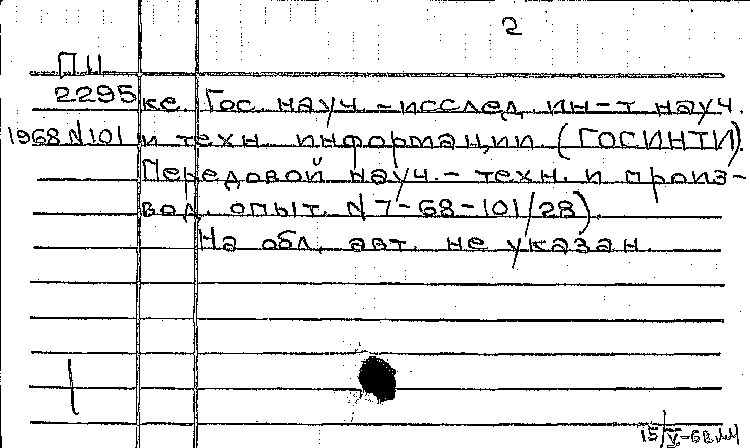 2
ПЦ
2295 ке. Гос. науч.-исслед. ин-т науч.
1968 N101 и техн. информации. (ГОСИНТИ).
Передовой науч.- техн. и произ-
вод. опыт. N 7-68-101/28).
На обл. авт. не указан.
15/V-68